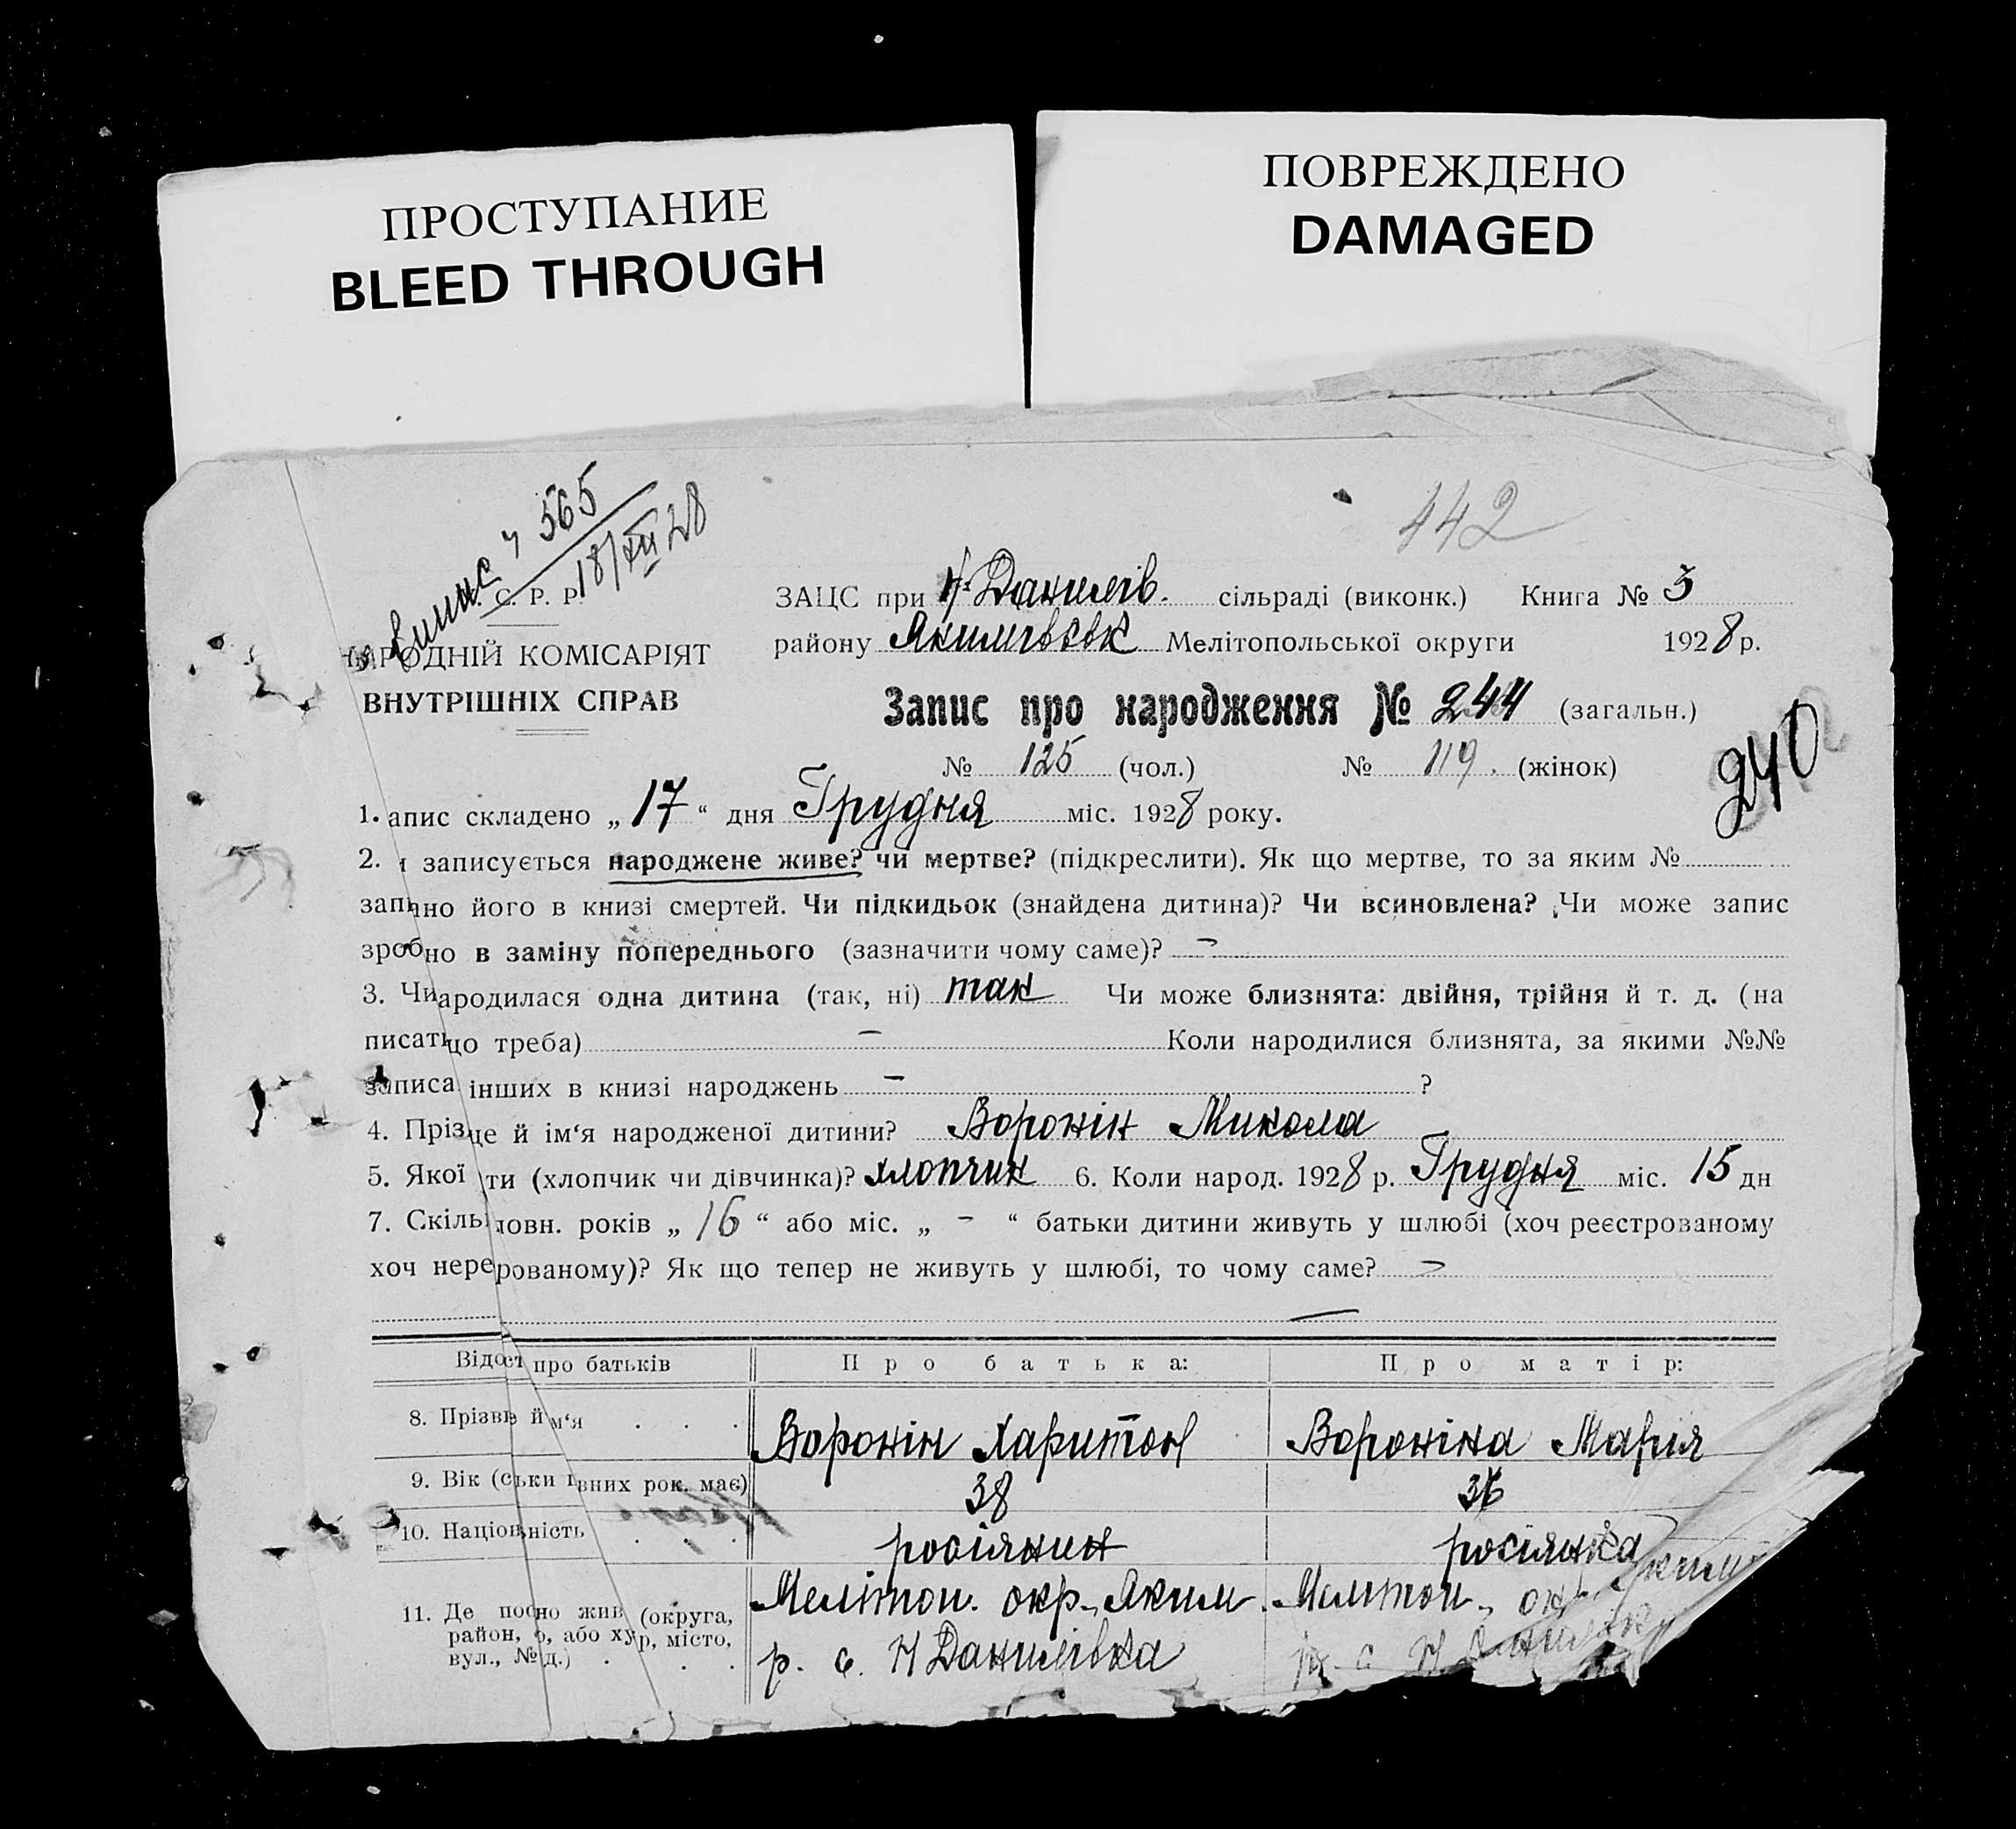 ПРОСТУПАНИЕ
BLEED THROUGH
ПОВРЕЖДЕНО
DAMAGED
442
565
18/XII 28
С. Р. Р.
НАРОДНІЙ КОМІСАРІЯТ
ВНУТРІШНІХ СПРАВ
ЗАЦС при Н-Данилів. сільраді (виконк.) Книга № 3
району Якимівськ Мелітопольської округи 1928 р.
Запис про народження № 244 (загальн.)
№ 125 (чол.) № 119. (жінок)
240
1. апис складено „ 17 “ дня Грудня міс. 1928 року.
2. и записується народжене живе? чи мертве? (підкреслити). Як що мертве, то за яким №
запано його в книзі смертей. Чи підкидьок (знайдена дитина)? Чи всиновлена? Чи може запис
зробно в заміну попереднього (зазначити чому саме)? –
3. Чиародилася одна дитина (так, ні) так Чи може близнята: двійня, трійня й т. д. (на
писатицо треба) – Коли народилися близнята, за якими №№
записа інших в книзі народжень – ?
4. Прізце й ім‘я народженої дитини? Воронін Микола
5. Якої ти (хлопчик чи дівчинка)? хлопчик 6. Коли народ. 1928 р. Грудня міс. 15 дн
7. Скільповн. років „ 16 “ або міс. „ – “ батьки дитини живуть у шлюбі (хоч реєстрованому
хоч нерерованому)? Як що тепер не живуть у шлюбі, то чому саме? –
Відост про батьків Про батька: Про матір:
8. Прізвів й м‘я Воронін Харитон Вороніна Мария
9. Вік (ськи івних рок. має) 38 36
10. Націонність росіянин росіянка
11. Де посно жив (округа, Мелітоп. окр., Яким. Мелітоп., окр. Яким
район, о, або хур, місто, р. с. Н Данилівка р. с. Н
вул., № д.)